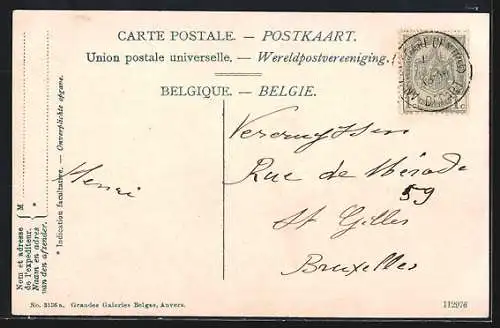 CARTE POSTALE. — POSTKAART.
Union postale universelle. — Wereldpostvereeniging.
BELGIQUE. — BELGIE.
Vercruyssen
Rue de Mérode
59
St Gilles
Bruxelles
Henri
* Indication facultative. — Onverplichte opgave.
Nom et adresse
de l'expéditeur.
Naam en adres
van den afzender.
M
*
No. 3136a. Grandes Galeries Belges, Anvers.
112976